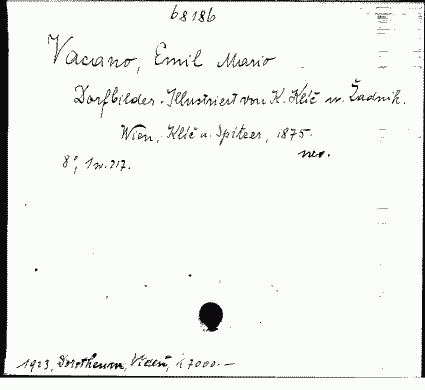 68186
Vacano, Emil Mario
Dorfbilder. Illustriert von K. Klíč u. Žadnik.
Wien, Klíč u. Spitzer, 1875.
8°, 1 w. 217.
1923, Dorotheum, Vídeň, K 7000.-